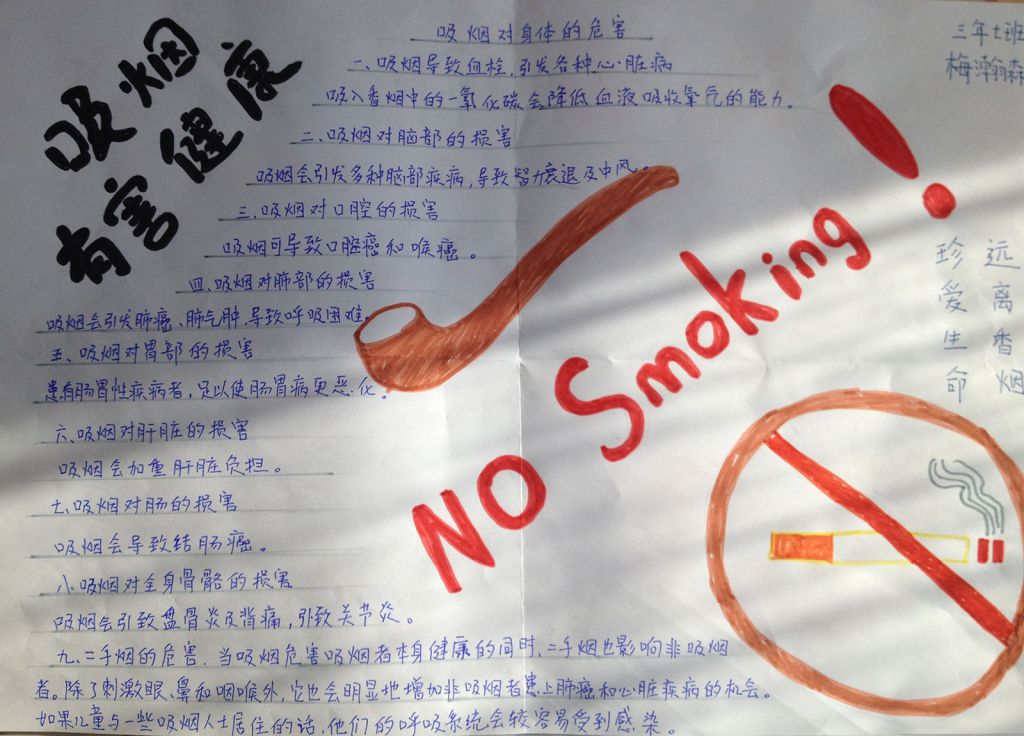 吸烟
有害健康
吸烟对身体的危害
一、吸烟导致血栓，引发各种心脏病
吸入香烟中的一氧化碳会降低血液吸收氧气的能力。
二、吸烟对脑部的损害
吸烟会引发多种脑部疾病，导致智力衰退及中风。
三、吸烟对口腔的损害
吸烟可导致口腔癌和喉癌。
四、吸烟对肺部的损害
吸烟会引发肺癌、肺气肿，导致呼吸困难。
五、吸烟对胃部的损害
患有肠胃性疾病者，足以使肠胃病更恶化。
六、吸烟对肝脏的损害
吸烟会加重肝脏负担。
七、吸烟对肠的损害
吸烟会导致结肠癌。
八、吸烟对全身骨骼的损害
吸烟会引致盘骨炎及背痛，引致关节炎。
九、二手烟的危害．当吸烟危害吸烟者本身健康的同时，二手烟也影响非吸烟
者。除了刺激眼、鼻和咽喉外，它也会明显地增加非吸烟者患上肺癌和心脏疾病的机会。
如果儿童与一些吸烟人士居住的话，他们的呼吸系统会较容易受到感染。
NO Smoking!
三年七班
梅瀚森
珍爱生命
远离香烟